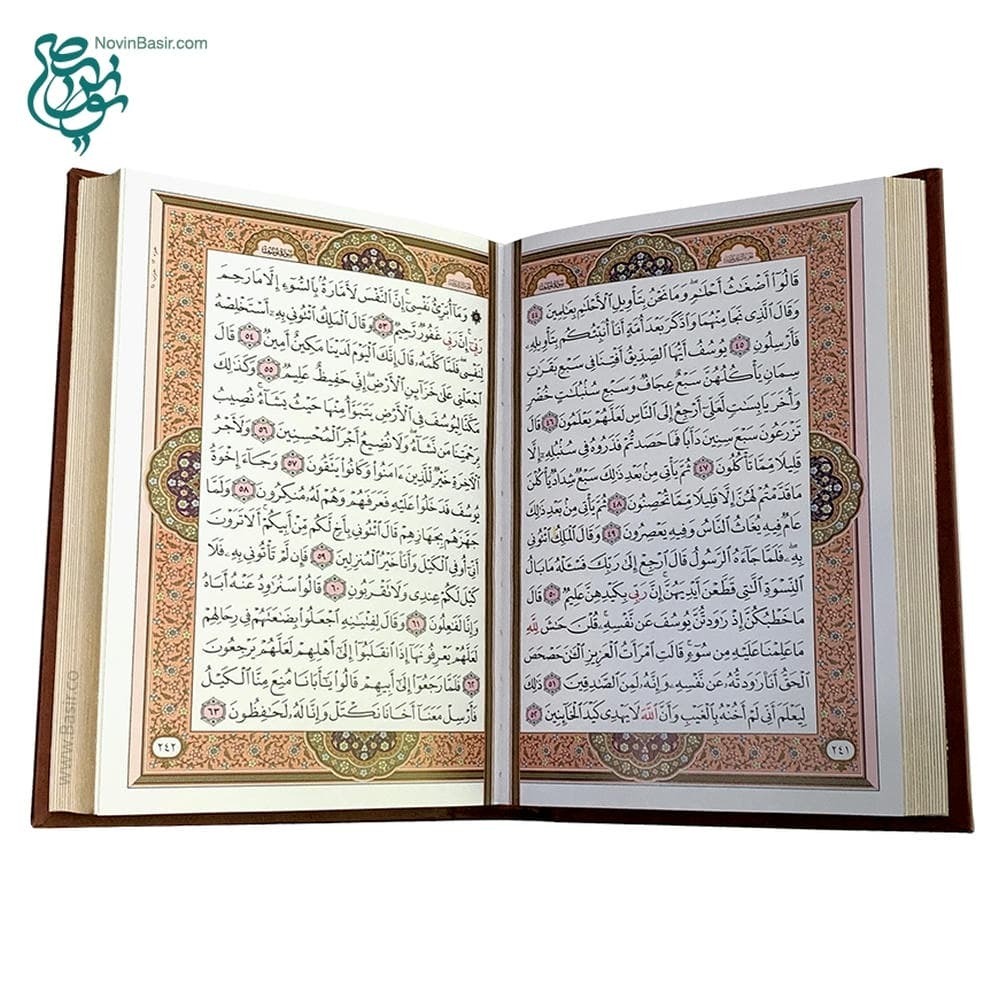 NovinBasir.com
قَالُوٓا۟ أَضْغَٰثُ أَحْلَٰمٍۢ وَمَا نَحْنُ بِتَأْوِيلِ ٱلْأَحْلَٰمِ بِعَٰلِمِينَ ٤٤
وَقَالَ ٱلَّذِى نَجَا مِنْهُمَا وَٱدَّكَرَ بَعْدَ أُمَّةٍ أَنَا۠ أُنَبِّئُكُم بِتَأْوِيلِهِۦ
فَأَرْسِلُونِ ٤٥ يُوسُفُ أَيُّهَا ٱلصِّدِّيقُ أَفْتِنَا فِى سَبْعِ بَقَرَٰتٍۢ
سِمَانٍۢ يَأْكُلُهُنَّ سَبْعٌ عِجَافٌۭ وَسَبْعِ سُنۢبُلَٰتٍ خُضْرٍۢ
وَأُخَرَ يَابِسَٰتٍۢ لَّعَلِّىٓ أَرْجِعُ إِلَى ٱلنَّاسِ لَعَلَّهُمْ يَعْلَمُونَ ٤٦ قَالَ
تَزْرَعُونَ سَبْعَ سِنِينَ دَأَبًۭا فَمَا حَصَدتُّمْ فَذَرُوهُ فِى سُنۢبُلِهِۦٓ إِلَّا
قَلِيلًۭا مِّمَّا تَأْكُلُونَ ٤٧ ثُمَّ يَأْتِى مِنۢ بَعْدِ ذَٰلِكَ سَبْعٌۭ شِدَادٌۭ يَأْكُلْنَ
مَا قَدَّمْتُمْ لَهُنَّ إِلَّا قَلِيلًۭا مِّمَّا تُحْصِنُونَ ٤٨ ثُمَّ يَأْتِى مِنۢ بَعْدِ ذَٰلِكَ
عَامٌۭ فِيهِ يُغَاثُ ٱلنَّاسُ وَفِيهِ يَعْصِرُونَ ٤٩ وَقَالَ ٱلْمَلِكُ ٱئْتُونِى
بِهِۦ فَلَمَّا جَآءَهُ ٱلرَّسُولُ قَالَ ٱرْجِعْ إِلَىٰ رَبِّكَ فَسْـَٔلْهُ مَا بَالُ
ٱلنِّسْوَةِ ٱلَّٰتِى قَطَّعْنَ أَيْدِيَهُنَّ إِنَّ رَبِّى بِكَيْدِهِنَّ عَلِيمٌۭ ٥٠ قَالَ
مَا خَطْبُكُنَّ إِذْ رَٰوَدتُّنَّ يُوسُفَ عَن نَّفْسِهِۦ قُلْنَ حَٰشَ لِلَّهِ
مَا عَلِمْنَا عَلَيْهِ مِن سُوٓءٍۢ قَالَتِ ٱمْرَأَتُ ٱلْعَزِيزِ ٱلْـَٰٔنَ حَصْحَصَ
ٱلْحَقُّ أَنَا۠ رَٰوَدتُّهُۥ عَن نَّفْسِهِۦ وَإِنَّهُۥ لَمِنَ ٱلصَّٰدِقِينَ ٥١ ذَٰلِكَ
لِيَعْلَمَ أَنِّى لَمْ أَخُنْهُ بِٱلْغَيْبِ وَأَنَّ ٱللَّهَ لَا يَهْدِى كَيْدَ ٱلْخَآئِنِينَ ٥٢
٢٤١
وَمَآ أُبَرِّئُ نَفْسِىٓ إِنَّ ٱلنَّفْسَ لَأَمَّارَةٌۢ بِٱلسُّوٓءِ إِلَّا مَا رَحِمَ
رَبِّىٓ إِنَّ رَبِّى غَفُورٌۭ رَّحِيمٌۭ ٥٣ وَقَالَ ٱلْمَلِكُ ٱئْتُونِى بِهِۦٓ أَسْتَخْلِصْهُ
لِنَفْسِى فَلَمَّا كَلَّمَهُۥ قَالَ إِنَّكَ ٱلْيَوْمَ لَدَيْنَا مَكِينٌ أَمِينٌۭ ٥٤ قَالَ
ٱجْعَلْنِى عَلَىٰ خَزَآئِنِ ٱلْأَرْضِ إِنِّى حَفِيظٌ عَلِيمٌۭ ٥٥ وَكَذَٰلِكَ
مَكَّنَّا لِيُوسُفَ فِى ٱلْأَرْضِ يَتَبَوَّأُ مِنْهَا حَيْثُ يَشَآءُ نُصِيبُ
بِرَحْمَتِنَا مَن نَّشَآءُ وَلَا نُضِيعُ أَجْرَ ٱلْمُحْسِنِينَ ٥٦ وَلَأَجْرُ
ٱلْـَٔاخِرَةِ خَيْرٌۭ لِّلَّذِينَ ءَامَنُوا۟ وَكَانُوا۟ يَتَّقُونَ ٥٧ وَجَآءَ إِخْوَةُ
يُوسُفَ فَدَخَلُوا۟ عَلَيْهِ فَعَرَفَهُمْ وَهُمْ لَهُۥ مُنكِرُونَ ٥٨ وَلَمَّا
جَهَّزَهُم بِجَهَازِهِمْ قَالَ ٱئْتُونِى بِأَخٍۢ لَّكُم مِّنْ أَبِيكُمْ أَلَا تَرَوْنَ
أَنِّىٓ أُوفِى ٱلْكَيْلَ وَأَنَا۠ خَيْرُ ٱلْمُنزِلِينَ ٥٩ فَإِن لَّمْ تَأْتُونِى بِهِۦ فَلَا
كَيْلَ لَكُمْ عِندِى وَلَا تَقْرَبُونِ ٦٠ قَالُوا۟ سَنُرَٰوِدُ عَنْهُ أَبَاهُ
وَإِنَّا لَفَٰعِلُونَ ٦١ وَقَالَ لِفِتْيَٰنِهِ ٱجْعَلُوا۟ بِضَٰعَتَهُمْ فِى رِحَالِهِمْ
لَعَلَّهُمْ يَعْرِفُونَهَآ إِذَا ٱنقَلَبُوٓا۟ إِلَىٰٓ أَهْلِهِمْ لَعَلَّهُمْ يَرْجِعُونَ
٦٢ فَلَمَّا رَجَعُوٓا۟ إِلَىٰٓ أَبِيهِمْ قَالُوا۟ يَٰٓأَبَانَا مُنِعَ مِنَّا ٱلْكَيْلُ
فَأَرْسِلْ مَعَنَآ أَخَانَا نَكْتَلْ وَإِنَّا لَهُۥ لَحَٰفِظُونَ ٦٣
٢٤٢
www.Basir.co